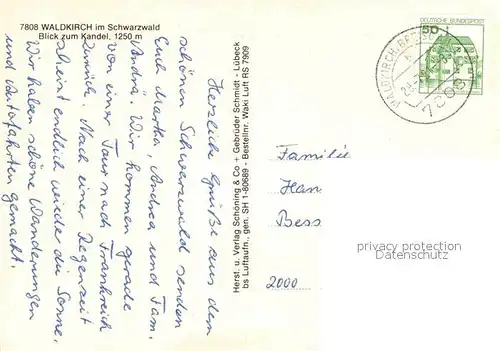 7808 WALDKIRCH im Schwarzwald
Blick zum Kandel, 1250 m
Herzliche Grüße aus dem
schönen Schwarzwald senden
Euch Martha, Andrea und Fam.
Andrä. Wir kommen gerade
von einer Tour nach Frankreich
zurück. Nach einer Regenzeit
scheint endlich wieder die Sonne.
Wir haben schöne Wanderungen
und Autofahrten gemacht.
Herst. u. Verlag Schöning & Co + Gebrüder Schmidt - Lübeck
bs Luftaufn., gen. SH 1-80689 - Bestellnr. Waki Luft RS 7909
DEUTSCHE BUNDESPOST
50
WALDKIRCH
7808
Familie
Han
Bess
2000
privacy protection
Ansichtskartenhandel.de